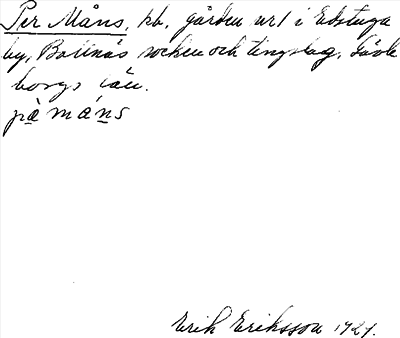 Per Måns, kb, gården nr 1 i Edstuga
by, Bollnäs socken och tingslag, Gävle
borgs län.
pà máns
Erik Eriksson 1921.